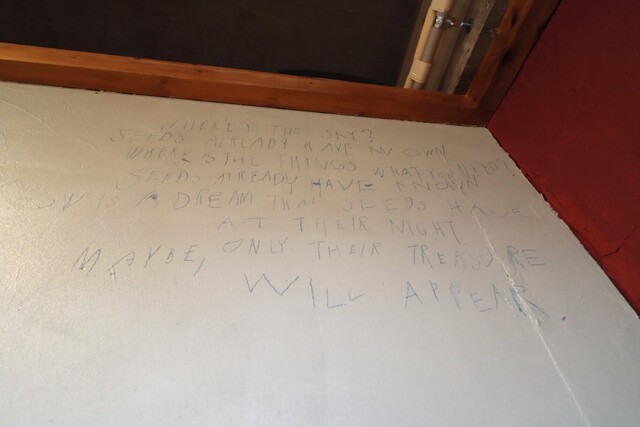 WHERE IS THE SKY?
SEEDS ALREADY HAVE KNOWN
WHERE IS THE THINGS WHAT YOU NEED?
SEEDS ALREADY HAVE KNOWN
JOY IS A DREAM THAT SEEDS HAVE
AT THEIR NIGHT
MAYBE, ONLY THEIR TREASURE
WILL APPEAR.